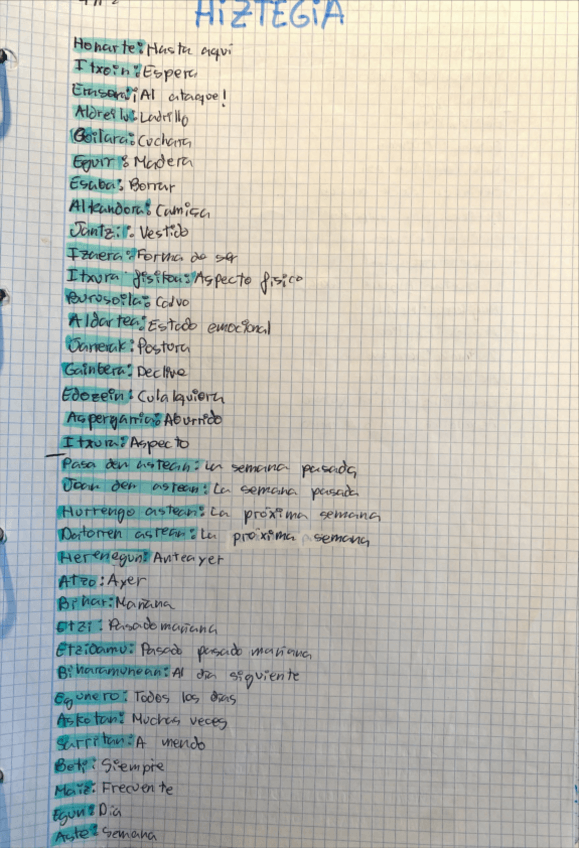 HIZTEGIA
Honarte: Hasta aquí
Itxoin: Espera
¡Al ataque!
Adreilu: Ladrillo
Goilara: Cuchara
Egurr: Madera
Esaba: Borrar
Alkandora: Camisa
Jantzi: Vestido
Izaera: Forma de ser
Itxura fisikoa: Aspecto físico
Burusoila: Calvo
Aldartea: Estado emocional
Postura
Gainbera: Declive
Edozein: Culalquiera
Aspergarria: Aburrido
Itxura: Aspecto
Pasa den astean: La semana pasada
Joan den astean: La semana pasada
Hurrengo astean: La próxima semana
Datorren astean: La próxima semana
Herenegun: Anteayer
Atzo: Ayer
Bihar: Mañana
Etzi: Pasado mañana
Etzidamu: Pasado pasado mañana
Biharamunean: Al día siguiente
Egunero: Todos los días
Askotan: Muchas veces
Sarritan: A mendo
Beti: Siempre
Maiz: Frecuente
Egun: Día
Aste: Semana